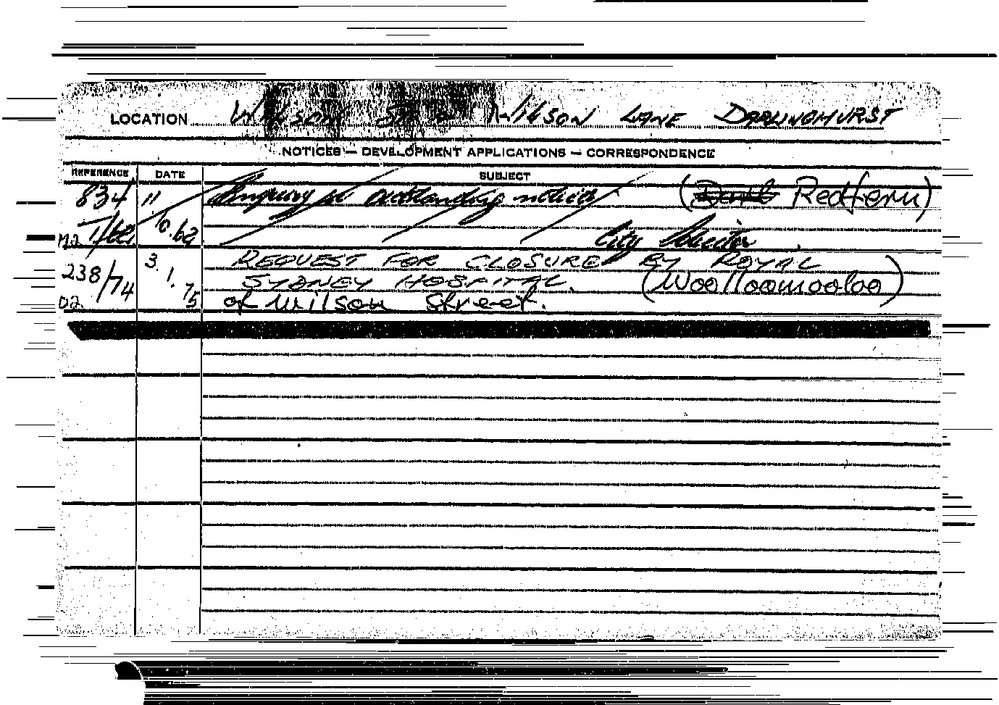 LOCATION WILSON ST & WILSON LANE DARLINGHURST
NOTICES — DEVELOPMENT APPLICATIONS — CORRESPONDENCE
REFERENCE DATE SUBJECT
834 " Enquiry re outstanding notices (Redfern)
1/62 10.62 City Solicitor.
238/74 3.1.75 REQUEST FOR CLOSURE BY ROYAL
SYDNEY HOSPITAL. (Woolloomooloo)
D2. of Wilson Street.